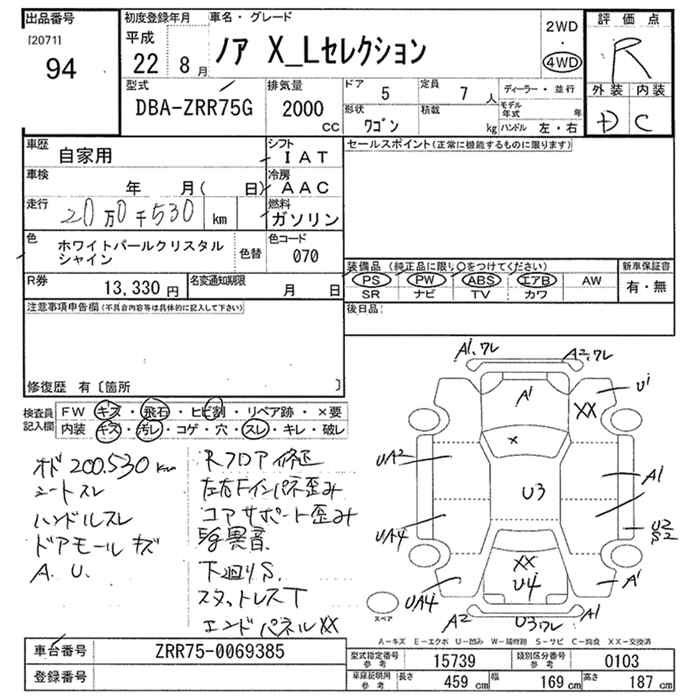 出品番号
[2071]
94
初度登録年月
平成
22 8月
車名・グレード
ノア X_Lセレクション
2WD
・
4WD
評価点
R
外装 内装
D C
型式
DBA-ZRR75G
排気量
2000
cc
ドア 5
定員 7人
形状 ワゴン
積載 kg
ディーラー・並行
モデル年式 年
ハンドル 左・右
車歴
自家用
シフト
I A T
車検
年 月( 日)
冷房
A A C
走行
20万0千530 km
燃料
ガソリン
色
ホワイトパールクリスタル
シャイン
色替
色コード
070
R券
13,330 円
名変通知期限
月 日
セールスポイント(正常に機能するものに限ります)
装備品 (純正品に限り○をつけてください)
PS PW ABS エアB AW
SR ナビ TV カワ
新車保証書
有・無
注意事項申告欄(不具合内容等は具体的に記入して下さい)
後日品:
修復歴 有〔箇所 〕
検査員
記入欄
FW キズ・飛石・ヒビ割・リペア跡・×要
内装 キズ・汚レ・コゲ・穴・スレ・キレ・破レ
オド 200.530 km
シートスレ
ハンドルスレ
ドアモールキズ
A. U.
Rフロア修正
左右Fインパネ歪み
コアサポート歪み
異音
下廻りS.
スタットレスT
エンドパネルXX
A1,ワレ
A2,ワレ
A1
U1
XX
×
UA2
A1
U3
UA4
U2
S2
XX
U4
UA4
A1
A2
U3,ワレ
A1
スペア
A-キズ E-エクボ U-凹ミ W-補修跡 S-サビ C-腐食 XX-交換済
車台番号
ZRR75-0069385
登録番号
型式指定番号
参考
15739
類別区分番号
参考
0103
車庫証明用
参考
長さ 459 cm
幅 169 cm
高さ 187 cm